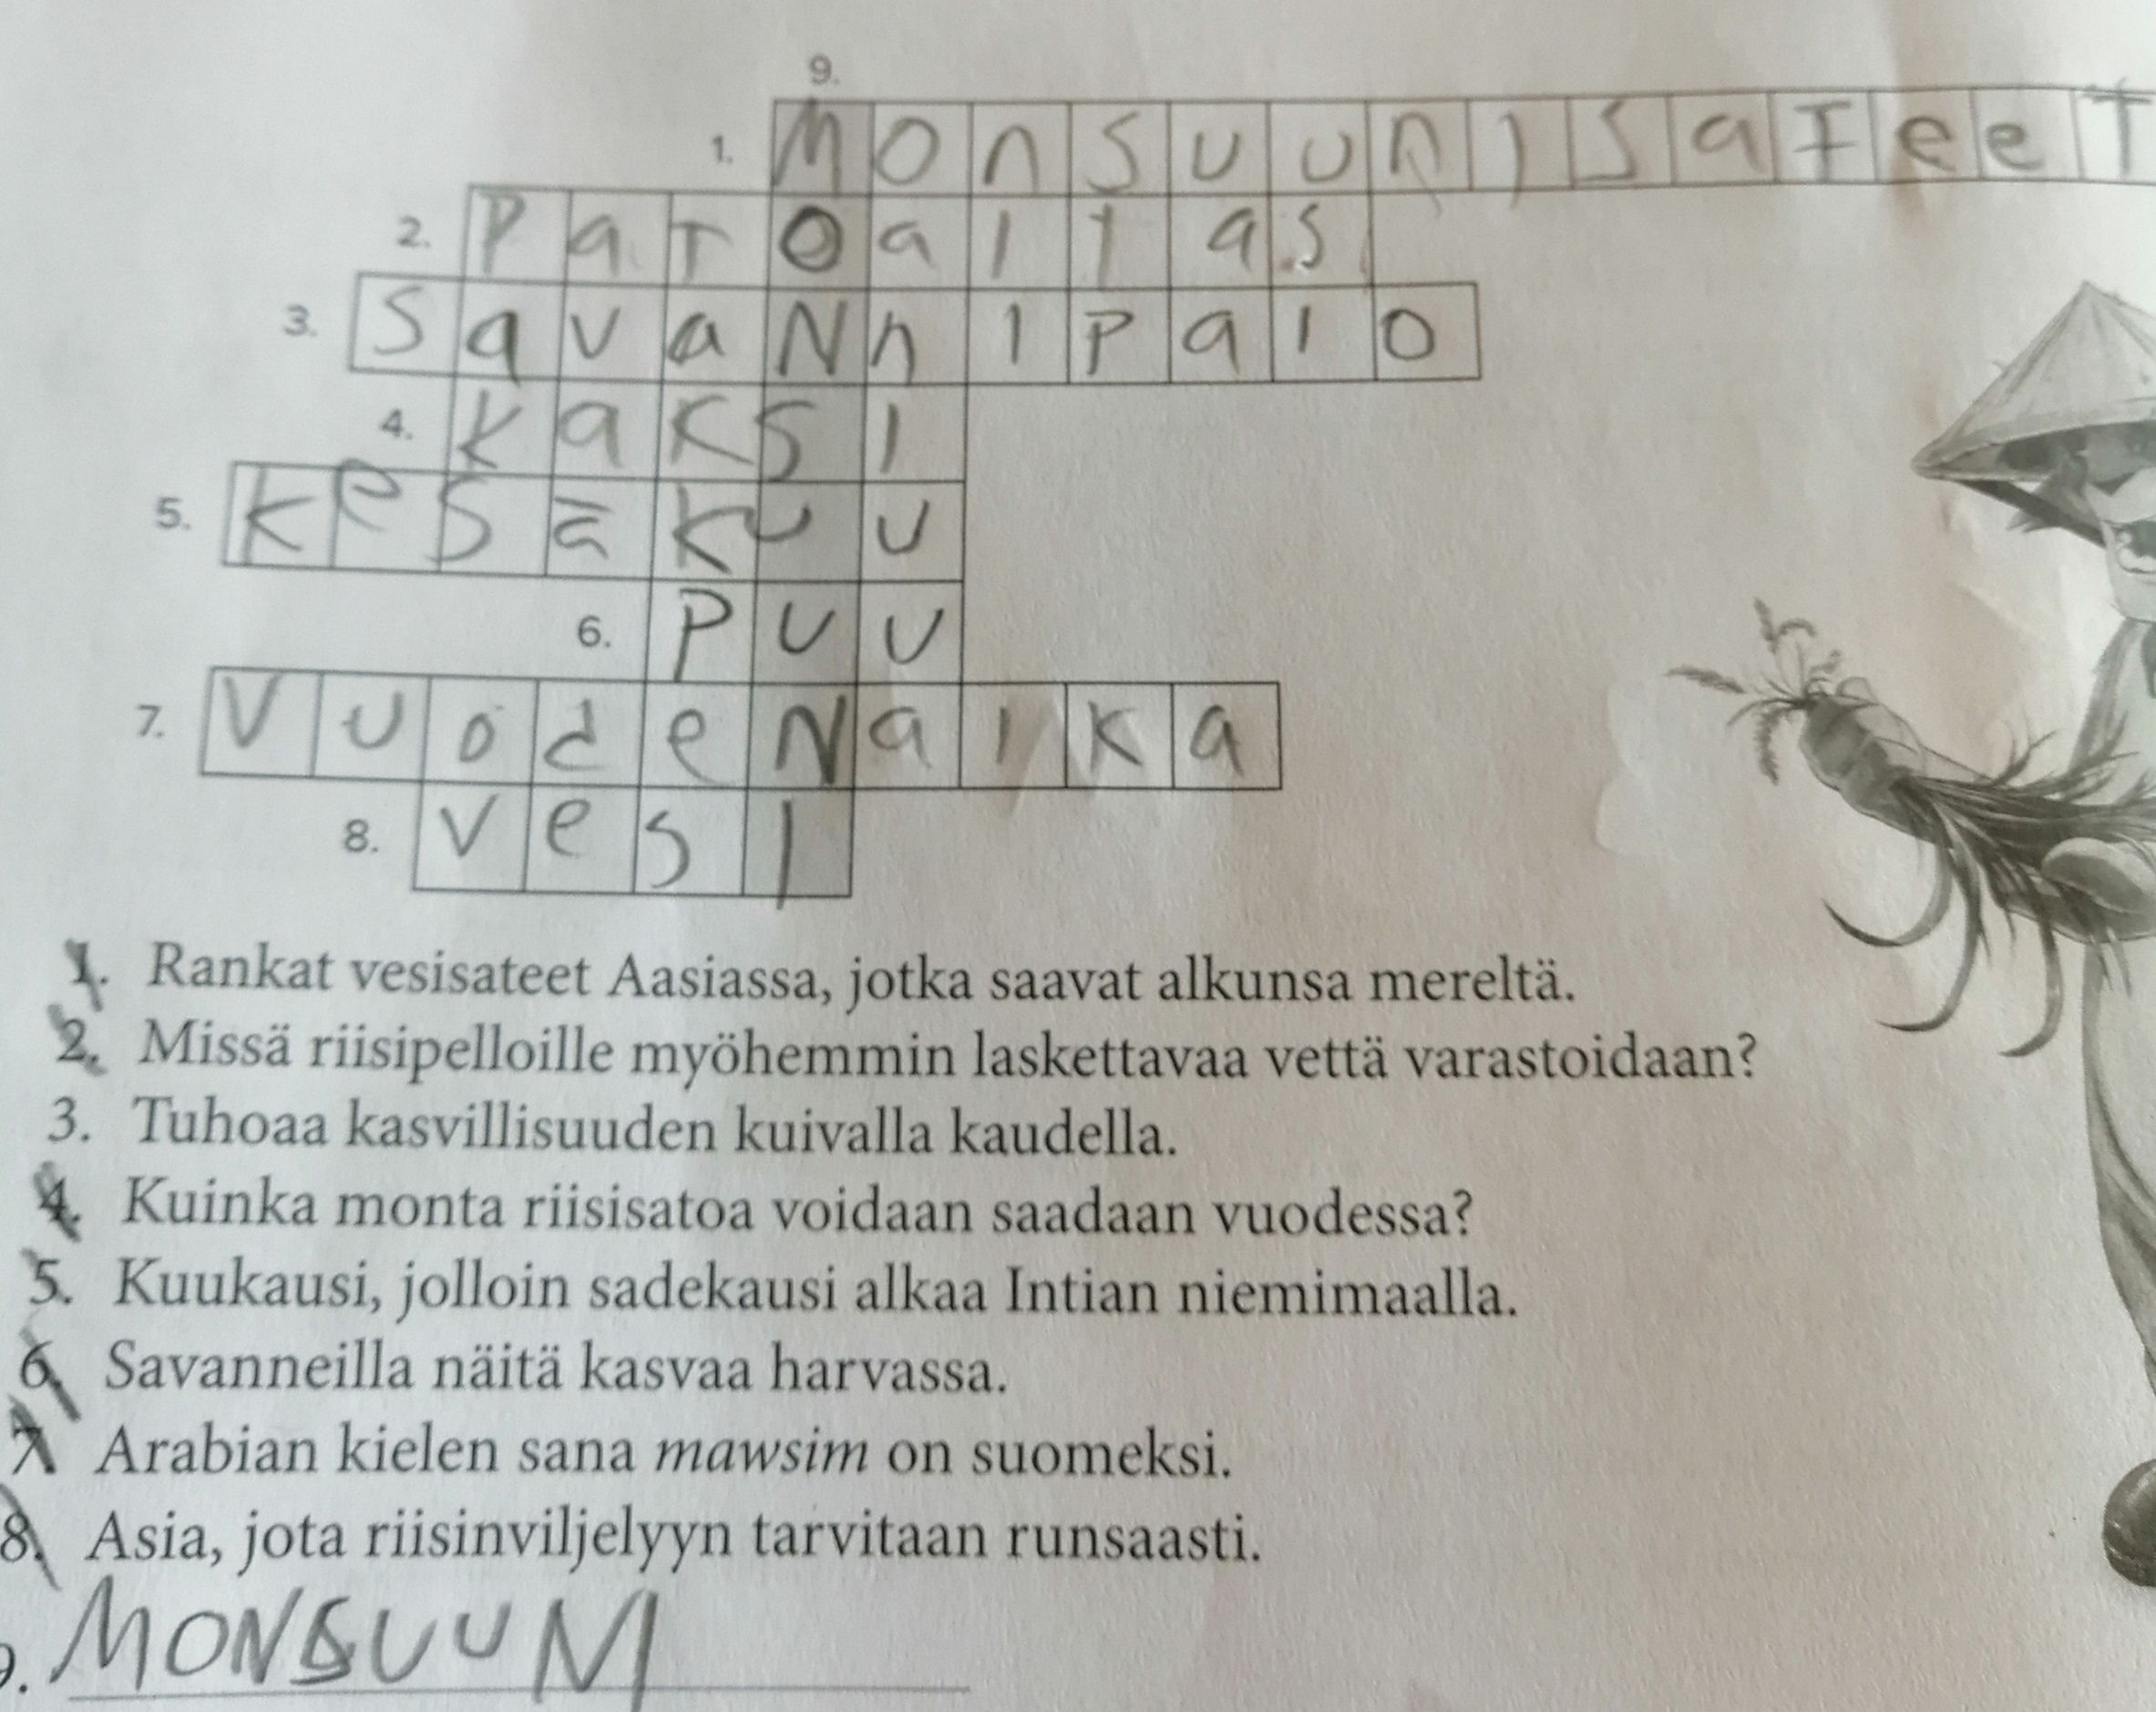 9.
1. MOnSUUnISATeeT
2. PaTOaltas
3. SavaNnIPalO
4. KaKSI
5. KeSäKUU
6. PUU
7. VUodeNaIKa
8. VeSI
1. Rankat vesisateet Aasiassa, jotka saavat alkunsa mereltä.
2. Missä riisipelloille myöhemmin laskettavaa vettä varastoidaan?
3. Tuhoaa kasvillisuuden kuivalla kaudella.
4. Kuinka monta riisisatoa voidaan saadaan vuodessa?
5. Kuukausi, jolloin sadekausi alkaa Intian niemimaalla.
6. Savanneilla näitä kasvaa harvassa.
7. Arabian kielen sana mawsim on suomeksi.
8. Asia, jota riisinviljelyyn tarvitaan runsaasti.
9. MONSUUNI